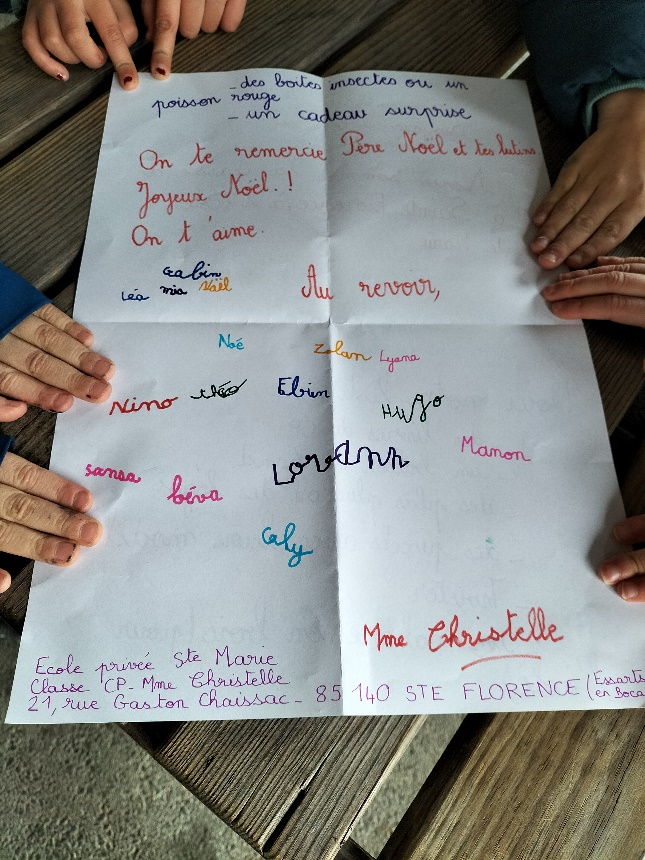 _ des boites insectes ou un
poisson rouge
_ un cadeau surprise
On te remercie Père Noël et tes lutins
Joyeux Noël. !
On t'aime.
Gabin
Léa mia Naël
Au revoir,
Noé
Zolan Lyana
Nino Théo Ebien Hugo
Manon
Lorann
Sansa béva
Caly
Mme Christelle
Ecole privée Ste Marie
Classe CP - Mme Christelle
21, rue Gaston Chaissac - 85 140 STE FLORENCE (Essarts
en Boca